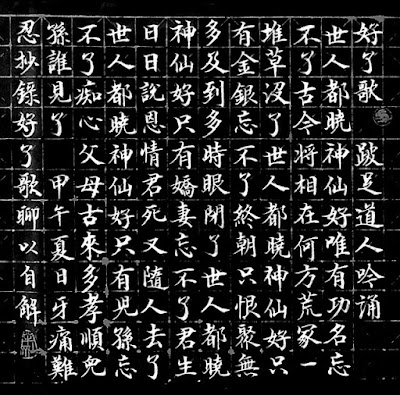 好了歌 跛足道人吟誦
世人都曉神仙好唯有功名忘
不了古今將相在何方荒冢一
堆草沒了世人都曉神仙好只
有金銀忘不了終朝只恨聚無
多及到多時眼閉了世人都曉
神仙好只有嬌妻忘不了君生
日日說恩情君死又隨人去了
世人都曉神仙好只有兒孫忘
不了痴心父母古來多孝順兒
孫誰見了 甲午夏日牙痛難
忍抄錄好了歌聊以自解